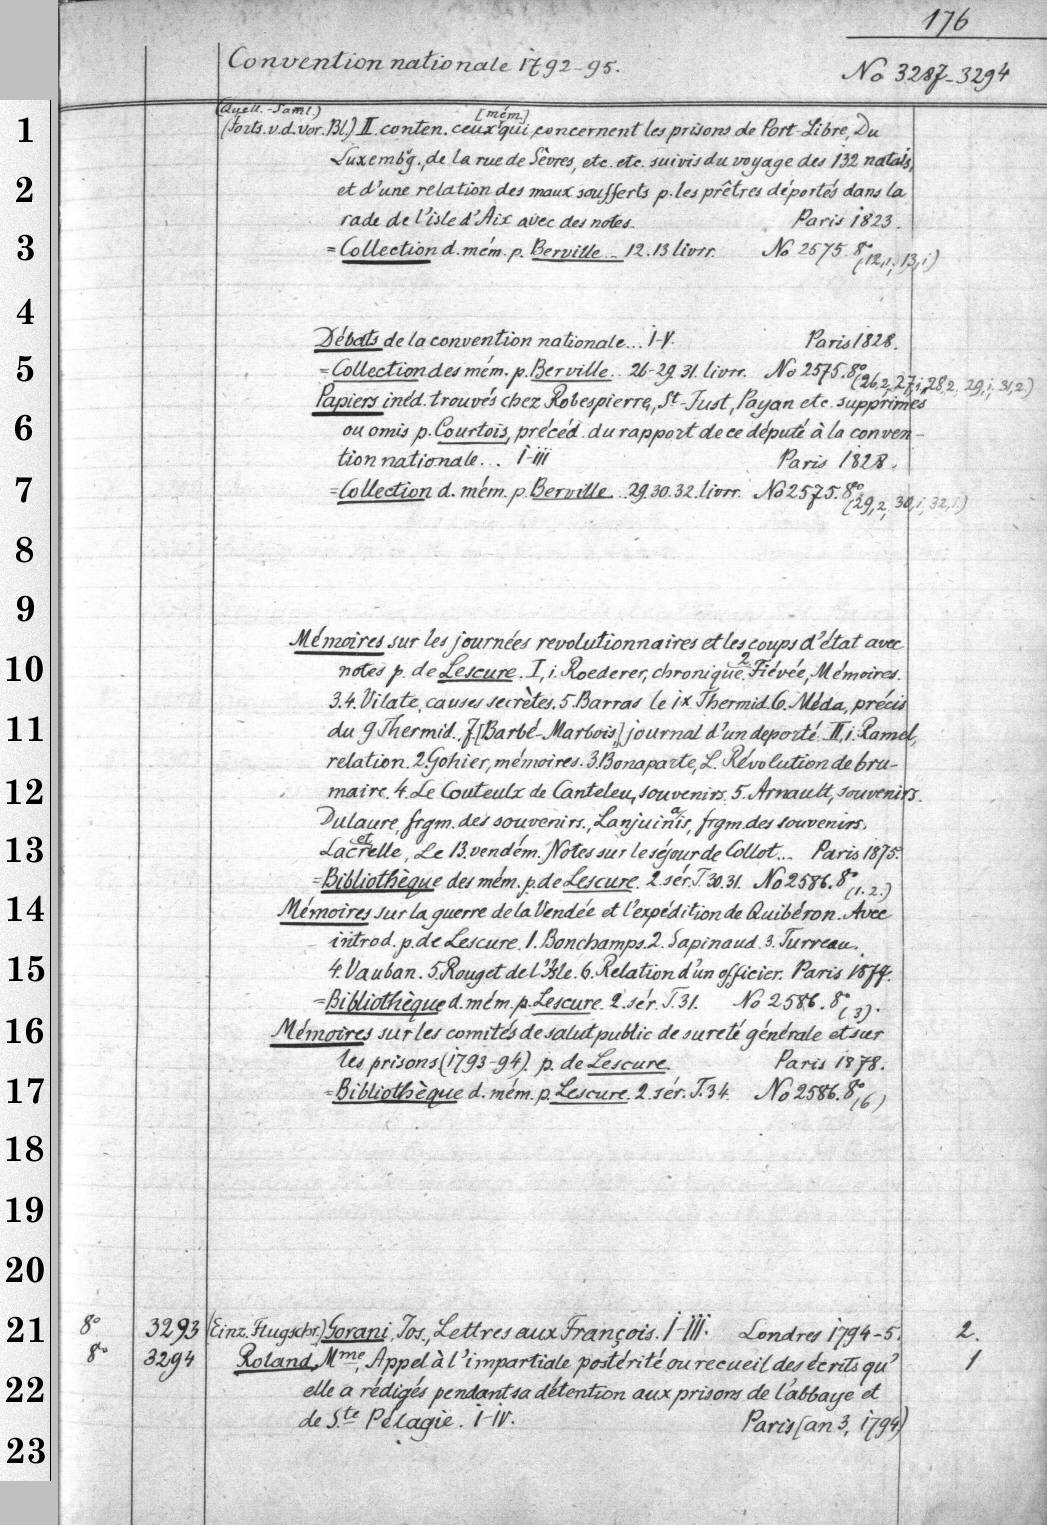 176
Convention nationale 1792-95.
No 3287-3294
(Quell.-Saml.)
[mém.]
1 (Forts. v. d. vor. Bl.) II. conten. ceux qui concernent les prisons de Port-Libre, Du
Luxembg., de la rue de Sèvres, etc. etc. suivis du voyage des 132 natais,
2 et d'une relation des maux soufferts p. les prêtres déportés dans la
rade de l'isle d'Aix avec des notes. Paris 1823.
3 = Collection d. mém. p. Berville.. 12. 13 livr. No 2575 8°
(12,1; 13,1)
4
Débats de la convention nationale... I-V. Paris 1828.
5 = Collection des mém. p. Berville.. 26-29. 31. livr. No 2575. 8°
(26,2, 27,1, 28,2, 29,1, 31,2)
Papiers inéd. trouvés chez Robespierre, St-Just, Payan etc. supprimés
6 ou omis p. Courtois, précéd. du rapport de ce député à la conven-
tion nationale... I-III Paris 1828.
7 = Collection d. mém. p. Berville.. 29. 30. 32. livr. No 2575. 8°
(29,2, 30,1, 32,1.)
8
9
Mémoires sur les journées revolutionnaires et les coups d'état avec
10 notes p. de Lescure. I, 1. Roederer, chronique. 2. Fiévée, Mémoires.
3. 4. Vilate, causes secrètes. 5. Barras le IX Thermid. 6. Méda, précis
11 du 9 Thermid. 7. [Barbé-Marbois,] journal d'un deporté. II, 1. Ramel,
relation. 2. Gohier, mémoires. 3. Bonaparte, L. Révolution de bru-
12 maire. 4. Le Couteulx de Canteleu, souvenirs. 5. Arnault, souvenirs.
Dulaure, frgm. des souvenirs., Lanjuinais, frgm. des souvenirs.
13 Lacretelle, Le 13. vendém. Notes sur le séjour de Collot... Paris 1875.
= Bibliothèque des mém. p. de Lescure. 2. sér. T. 30. 31. No 2586. 8°
(1. 2.)
14 Mémoires sur la guerre de la Vendée et l'expédition de Quibéron. Avec
introd. p. de Lescure. 1. Bonchamps. 2. Sapinaud. 3. Turreau.
15 4. Vauban. 5. Rouget de l'Isle. 6. Relation d'un officier. Paris 1877.
= Bibliothèque d. mém. p. Lescure. 2. sér. T. 31. No 2586. 8°
(3).
16 Mémoires sur les comités de salut public de sureté générale et sur
les prisons (1793-94). p. de Lescure. Paris 1878.
17 = Bibliothèque d. mém. p. Lescure. 2. sér. T. 34. No 2586. 8°
(6)
18
19
20
21 8° 3293 (Einz. Flugschr.) Gorani, Jos., Lettres aux François. I-III. Londres 1794-5. 2.
8° 3294 Roland, Mme, Appel à l'impartiale postérité ou recueil des écrits qu' 1
22 elle a rédigés pendant sa détention aux prisons de l'abbaye et
de Ste Pélagie. I-IV. Paris (an 3, 1794)
23